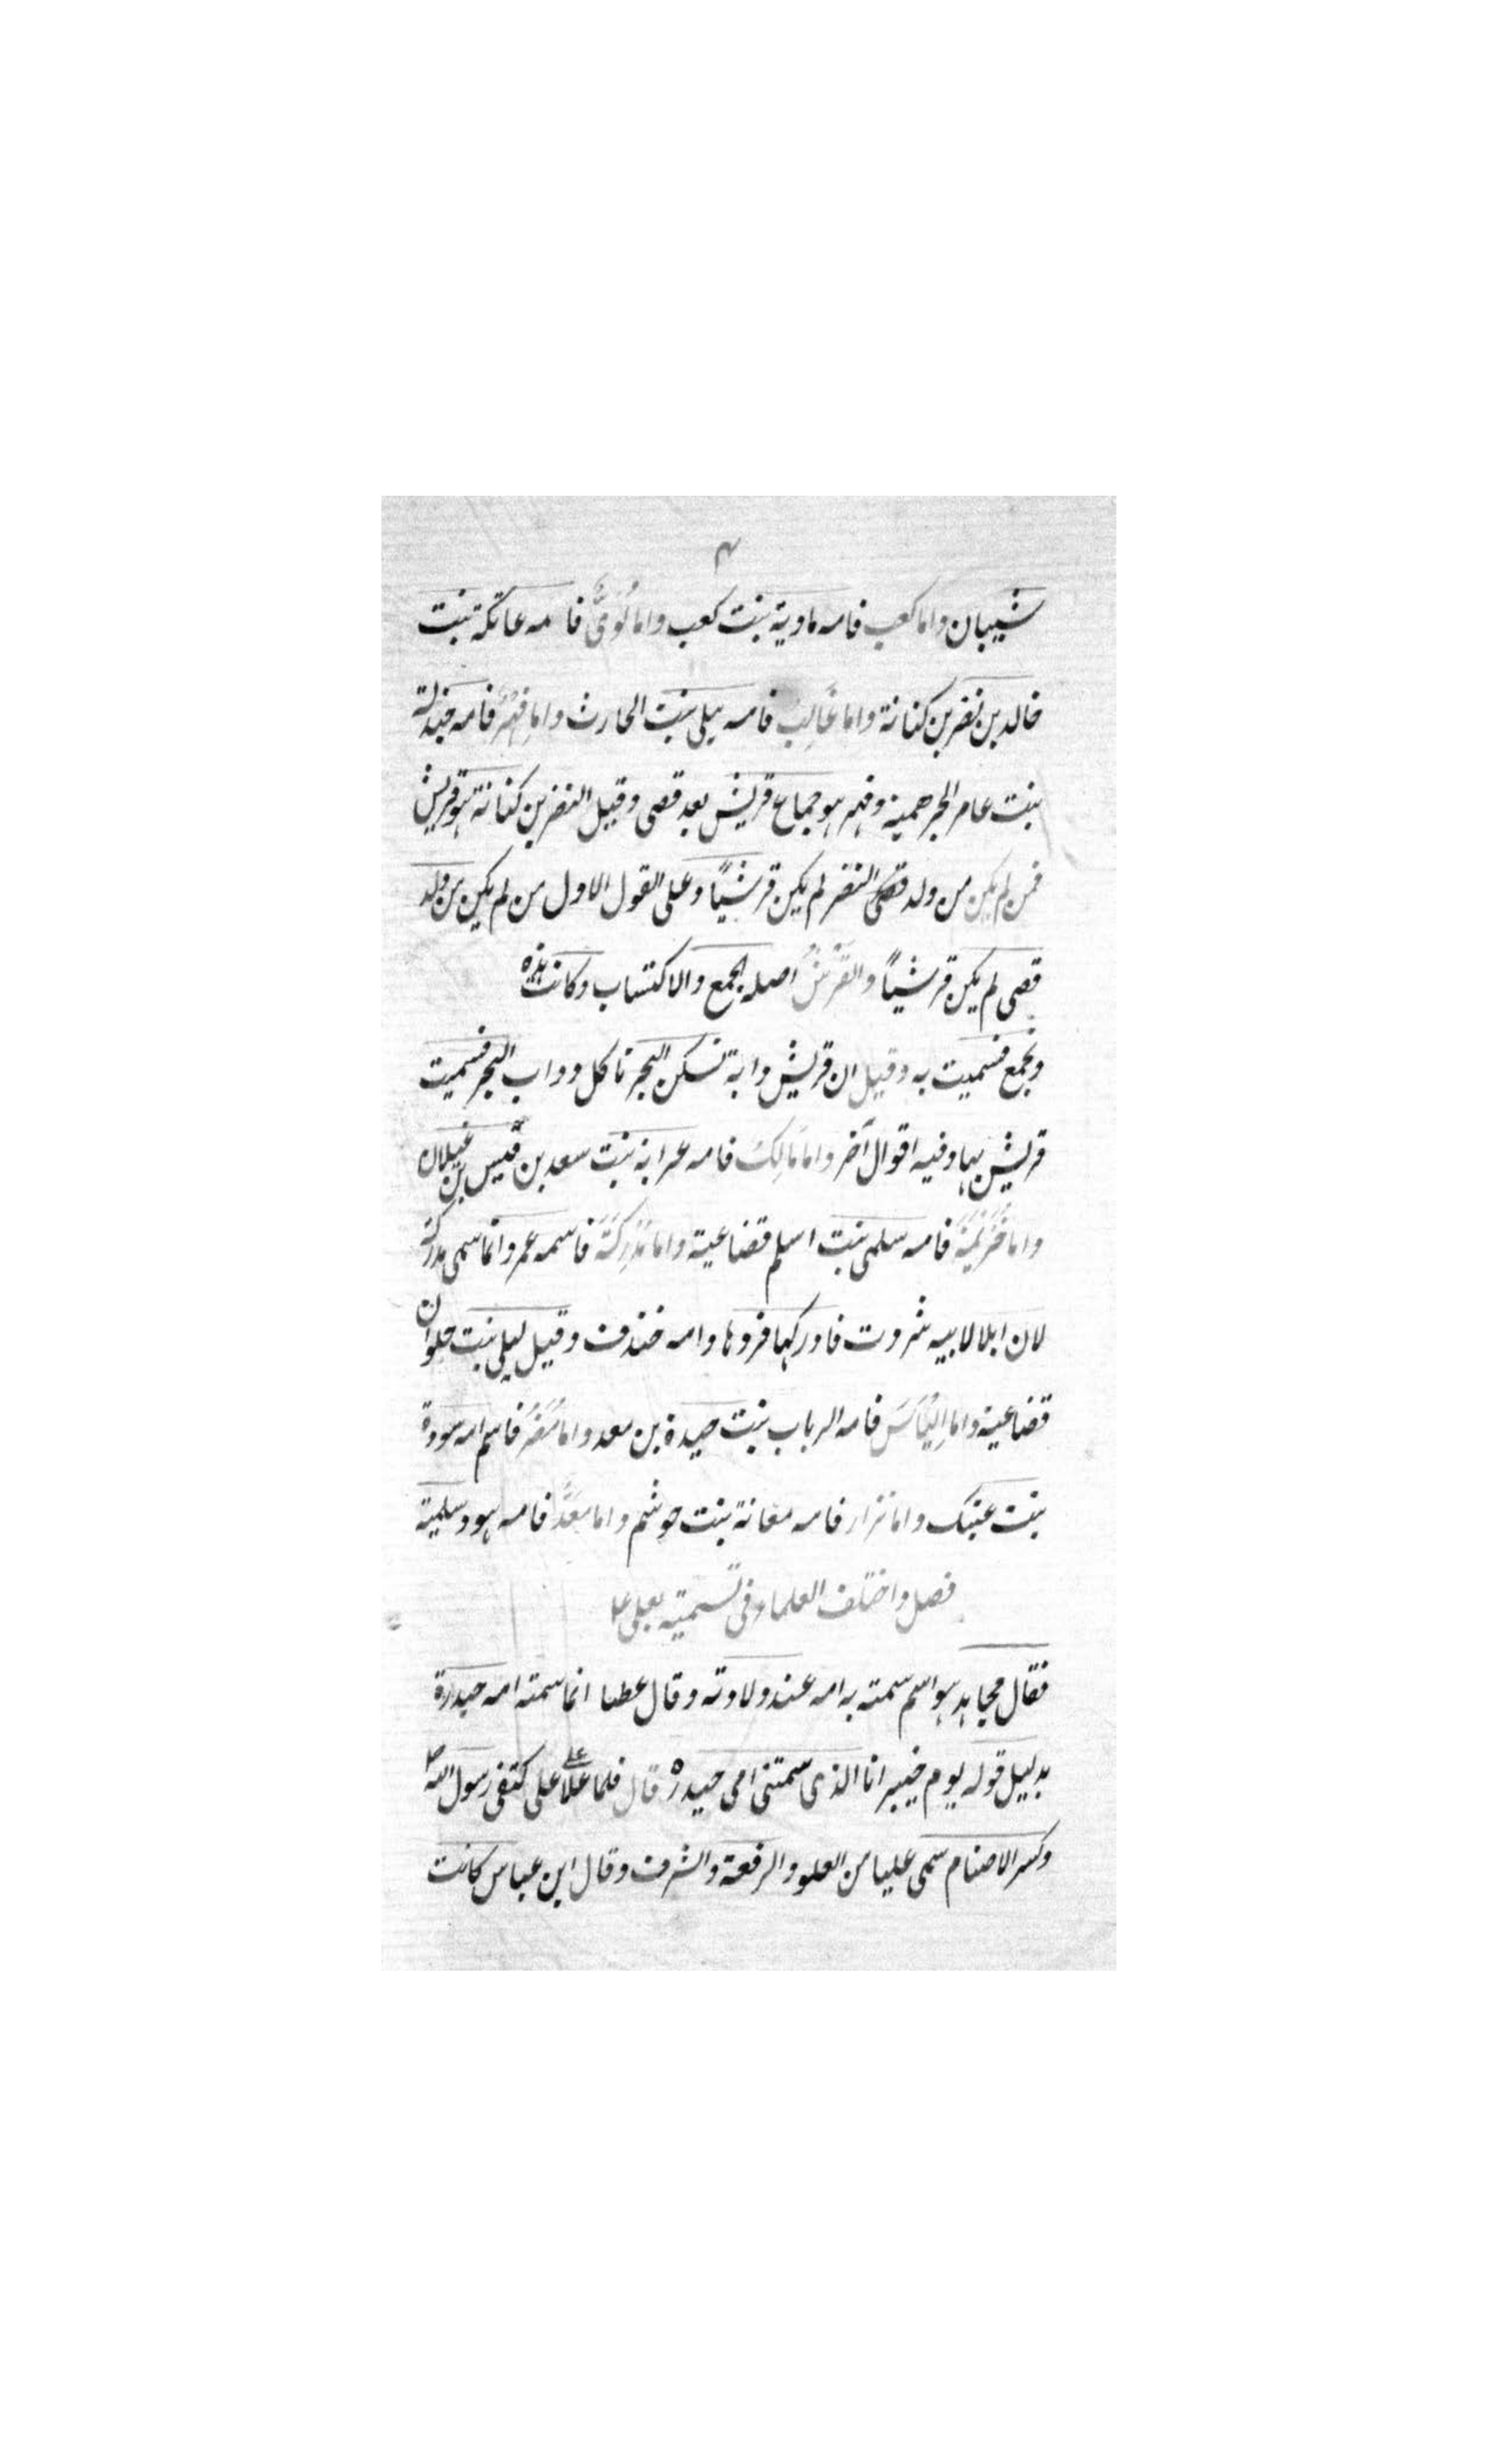 ٣
شيبان واما كعب فامه ماوية بنت كعب واما لُوَىٌّ فامه عاتكة بنت
خالد بن نضر بن كنانة واما غالِب فامه ليلى بنت الحارث واما فِهْرٌ فامه جندلة
بنت عامر الجرهمية وفهر هو جماع قريش بعد قصى وقيل النضر بن كنانة هو قريش
فمن لم يكن من ولد النضر لم يكن قرشياً وعلى القول الاول من لم يكن من ولد
قصى لم يكن قرشياً والقَرْشُ اصله الجمع والاكتساب وكانت هذه
وتجمع فسميت به وقيل ان قريش دابة تسكن البحر تاكل دواب البحر فسميت
قريش بها وفيه اقوال آخر واما مَالِكٌ فامه عرابة بنت سعد بن قيس بن غيلان
واما خُزَيْمَةُ فامه سلمى بنت اسلم قضاعية واما مُدْرِكَةُ فاسمه عمرو انما سمى مدركة
لان ابلا لابيه شردت فادركها فردها وامه خندف وقيل ليلى بنت حلوان
قضاعية واما اِلْيَاسَ فامه الرباب بنت حيدة بن معد واما مُضَرُ فاسم امه سودة
بنت عتيك واما نزار فامه معانة بنت جوشم واما مَعَدٌّ فامه هود سلمية
فصل واختلف العلماء فى تسميته بعلى ع
فقال مجاهد هو اسم سمته به امه عند ولادته وقال عطا انما سمته امه حيدرة
بدليل قوله يوم خيبر انا الذى سمتنى امى حيدره قال فلما علا على كتفى رسول الله ص
وكسر الاصنام سمى عليا من العلو والرفعة والشرف وقال ابن عباس كانت